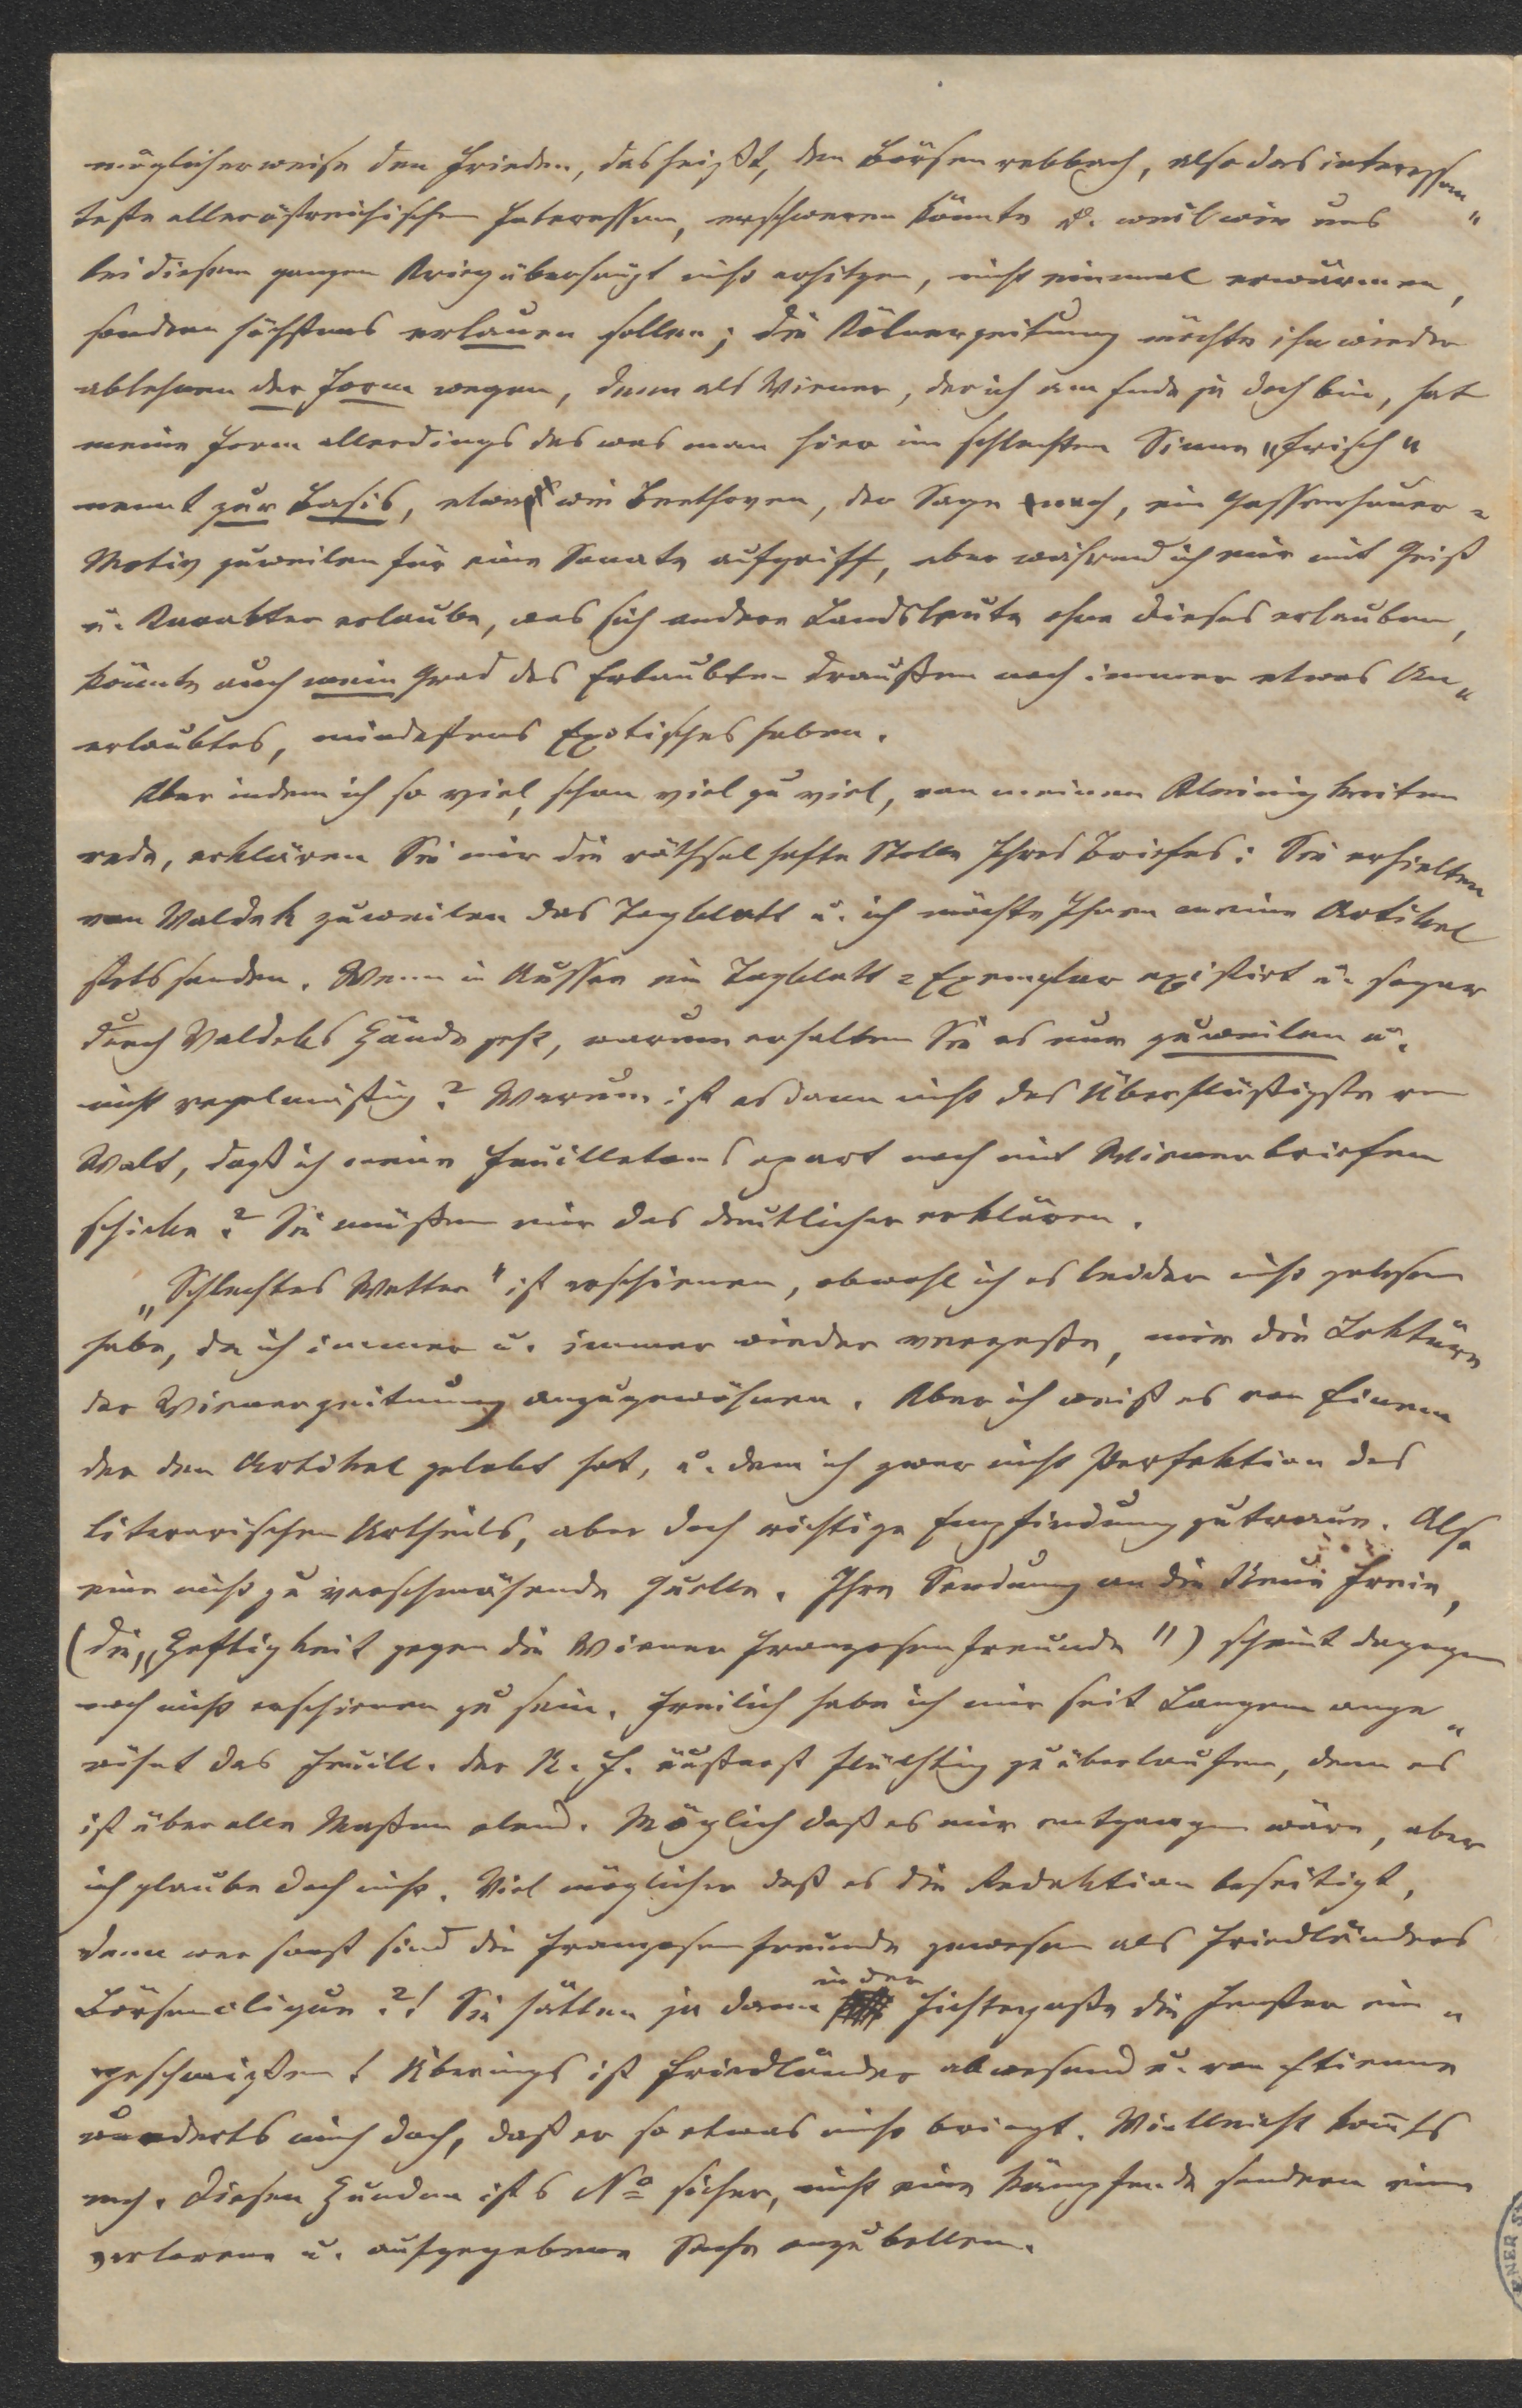 möglicherweise den Frieden, das heißt, den Börsenrebbach, also das interessan„
teste aller östreichischen Interessen, erschweren könnte u. weil wir uns
bei diesem ganzen Krieg überhaupt nicht erhitzen, nicht einmal erwärmen,
sondern höchstens erlauen sollen; die Kölnerzeitung möchte ihn wieder
ablehnen der Form wegen, denn als Wiener, der ich am Ende ja doch bin, hat
meine Form allerdings das was man hier im schlechten Sinne „frisch“
nennt zur Basis, etwa wie Beethoven, der Sage nach, ein Gassenhauer=
Motiv zuweilen für eine Sonate aufgriff, aber während ich mir mit Geist
u. Karakter erlaube, was sich andere Landsleute ohne dieses erlauben,
könnte auch mein Grad des Erlaubten draußen noch immer etwas Un„
erlaubtes, mindestens Exotisches haben.
Aber indem ich so viel, schon viel zu viel, von meinen Kleinigkeiten
rede, erklären Sie mir die räthselhafte Stelle Ihres Briefes: Sie erhielten
von Waldek zuweilen das Tagblatt u. ich möchte Ihnen meine Artikel
stets senden. Wenn in Aussee ein Tagblatt=Exemplar existirt u. sogar
durch Valdeks Hände geht, warum erhalten Sie es nur zuweilen u.
nicht regelmäßig? Warum ist es dann nicht das Überflüßigste von
Welt, daß ich meine Feuilletons apart noch mit Wienerbriefen
schicke? Sie müßen mir das deutlicher erklären.
„Schlechtes Wetter“ ist erschienen, obwohl ich es leider nicht gelesen
habe, da ich immer u. immer wieder vergesse, mir die Lektüre
der Wienerzeitung anzugewöhnen. Aber ich weiß es von Einem
der den Artikel gelobt hat, u. dem ich zwar nicht Perfektion des
literarischen Urtheils, aber doch richtige Empfindung zutraue. Also
eine nicht zu verschmähende Quelle. Ihre Sendung an die Neue Freie,
(die „Heftigkeit gegen die Wiener Franzosenfreunde“) scheint dagegen
noch nicht erschienen zu sein. Freilich habe ich mir seit Langem ange„
wöhnt das Feuill. der N. F. äußerst flüchtig zu überlaufen, denn es
ist über alle Maßen elend. Möglich daß es mir entgangen wäre, aber
ich glaube doch nicht. Viel möglicher daß es die Redaktion beseitigt,
denn wer sonst sind die Franzosenfreunde gewesen als Friedländers
Börsenclique?! Sie hätten ja dann in der Fichtegasse die Fenster ein„
geschmißen! Übrigens ist Friedländer abwesend u. von Etienne
wunderts mich doch, daß er so etwas nicht bringt. Vielleicht kommts
noch. Diesen Hunden ists No sicher, nicht eine kämpfende sondern eine
verlorene u. aufgegebene Sache anzubellen.